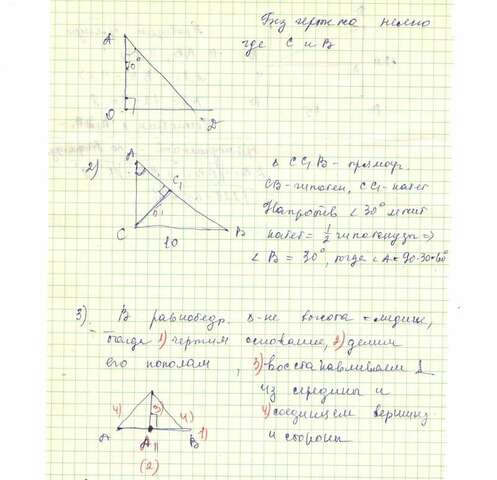 Без чертежа неясно
где C и B
A
O
D
2)
A
C₁
C
B
10
Δ CC₁B - прямоуг.
CB - гипотен, CC₁ - катет
Напротив ∠30° лежит
катет = 1/2 гипотенузы =>
∠B = 30°, тогда ∠A = 90-30=60°
3) В равнобедр. Δ-ке высота = медиане,
тогда 1) чертим основание, 2) делим
его пополам, 3) восстанавливаем ⊥
из середины и
4) соединяем вершину
и стороны
4) 3) 4)
A A B 1)
(2)